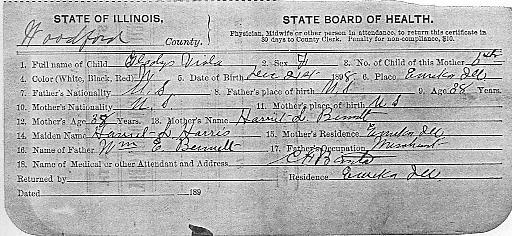 STATE OF ILLINOIS, STATE BOARD OF HEALTH.
Woodford County. Physician, Midwife or other person in attendance, to return this certificate in
30 days to County Clerk. Penalty for non-compliance, $10.
1. Full Name of Child Gladys Viola 2. Sex F 3. No. of Child of this Mother 6th
4. Color (White, Black, Red) W 5. Date of Birth Dec 21st 1898 6. Place Eureka Ill
7. Father's Nationality U.S 8. Father's place of birth U S 9. Age 38 Years.
10. Mother's Nationality U. S 11. Mother's place of birth U S
12. Mother's Age 38 Years 13. Mother's Name Harriet L. Bennett
14. Maiden Name Harriet L. Harris 15. Mother's Residence Eureka Ill
16. Name of Father Wm E. Bennett 17. Father's Occupation Merchant
18. Name of Medical or other Attendant and Address C H
Returned by Residence Eureka Ill
Dated 189